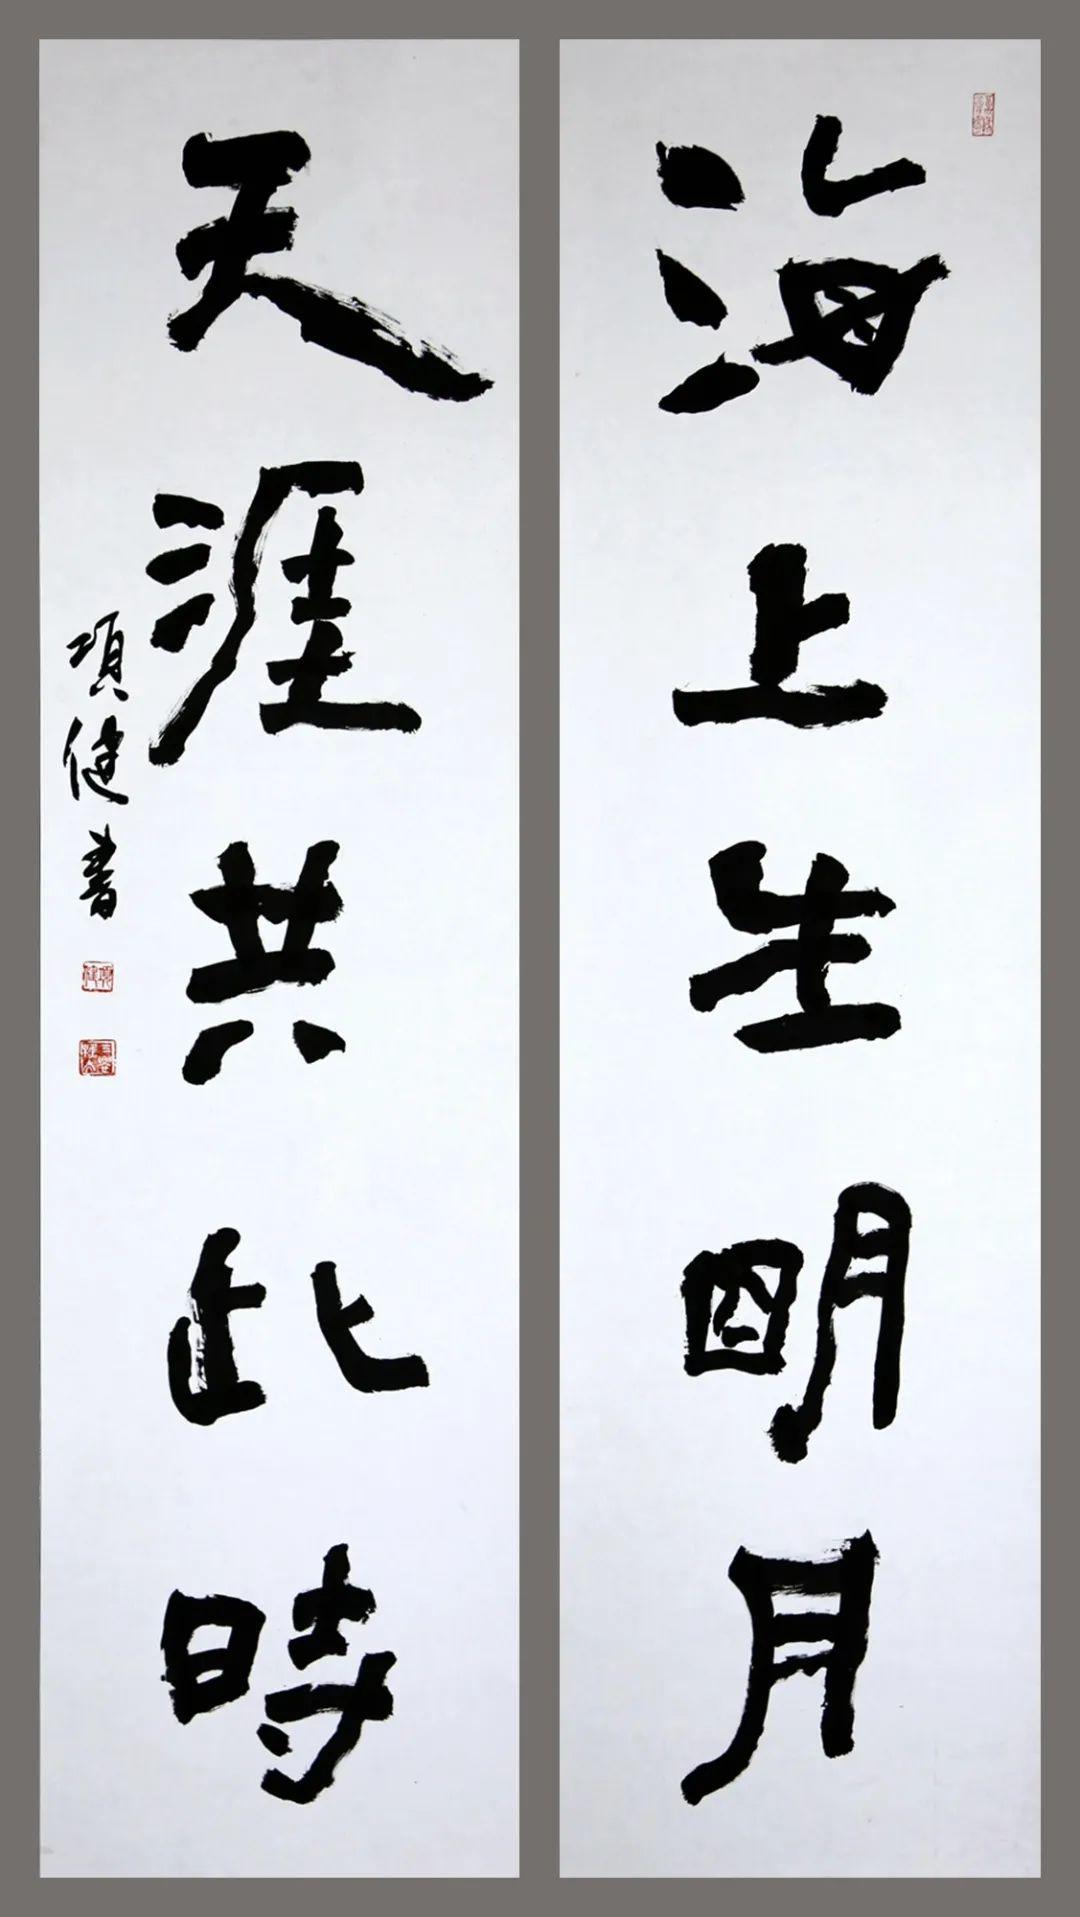 海上生明月
天涯共此時
項健書